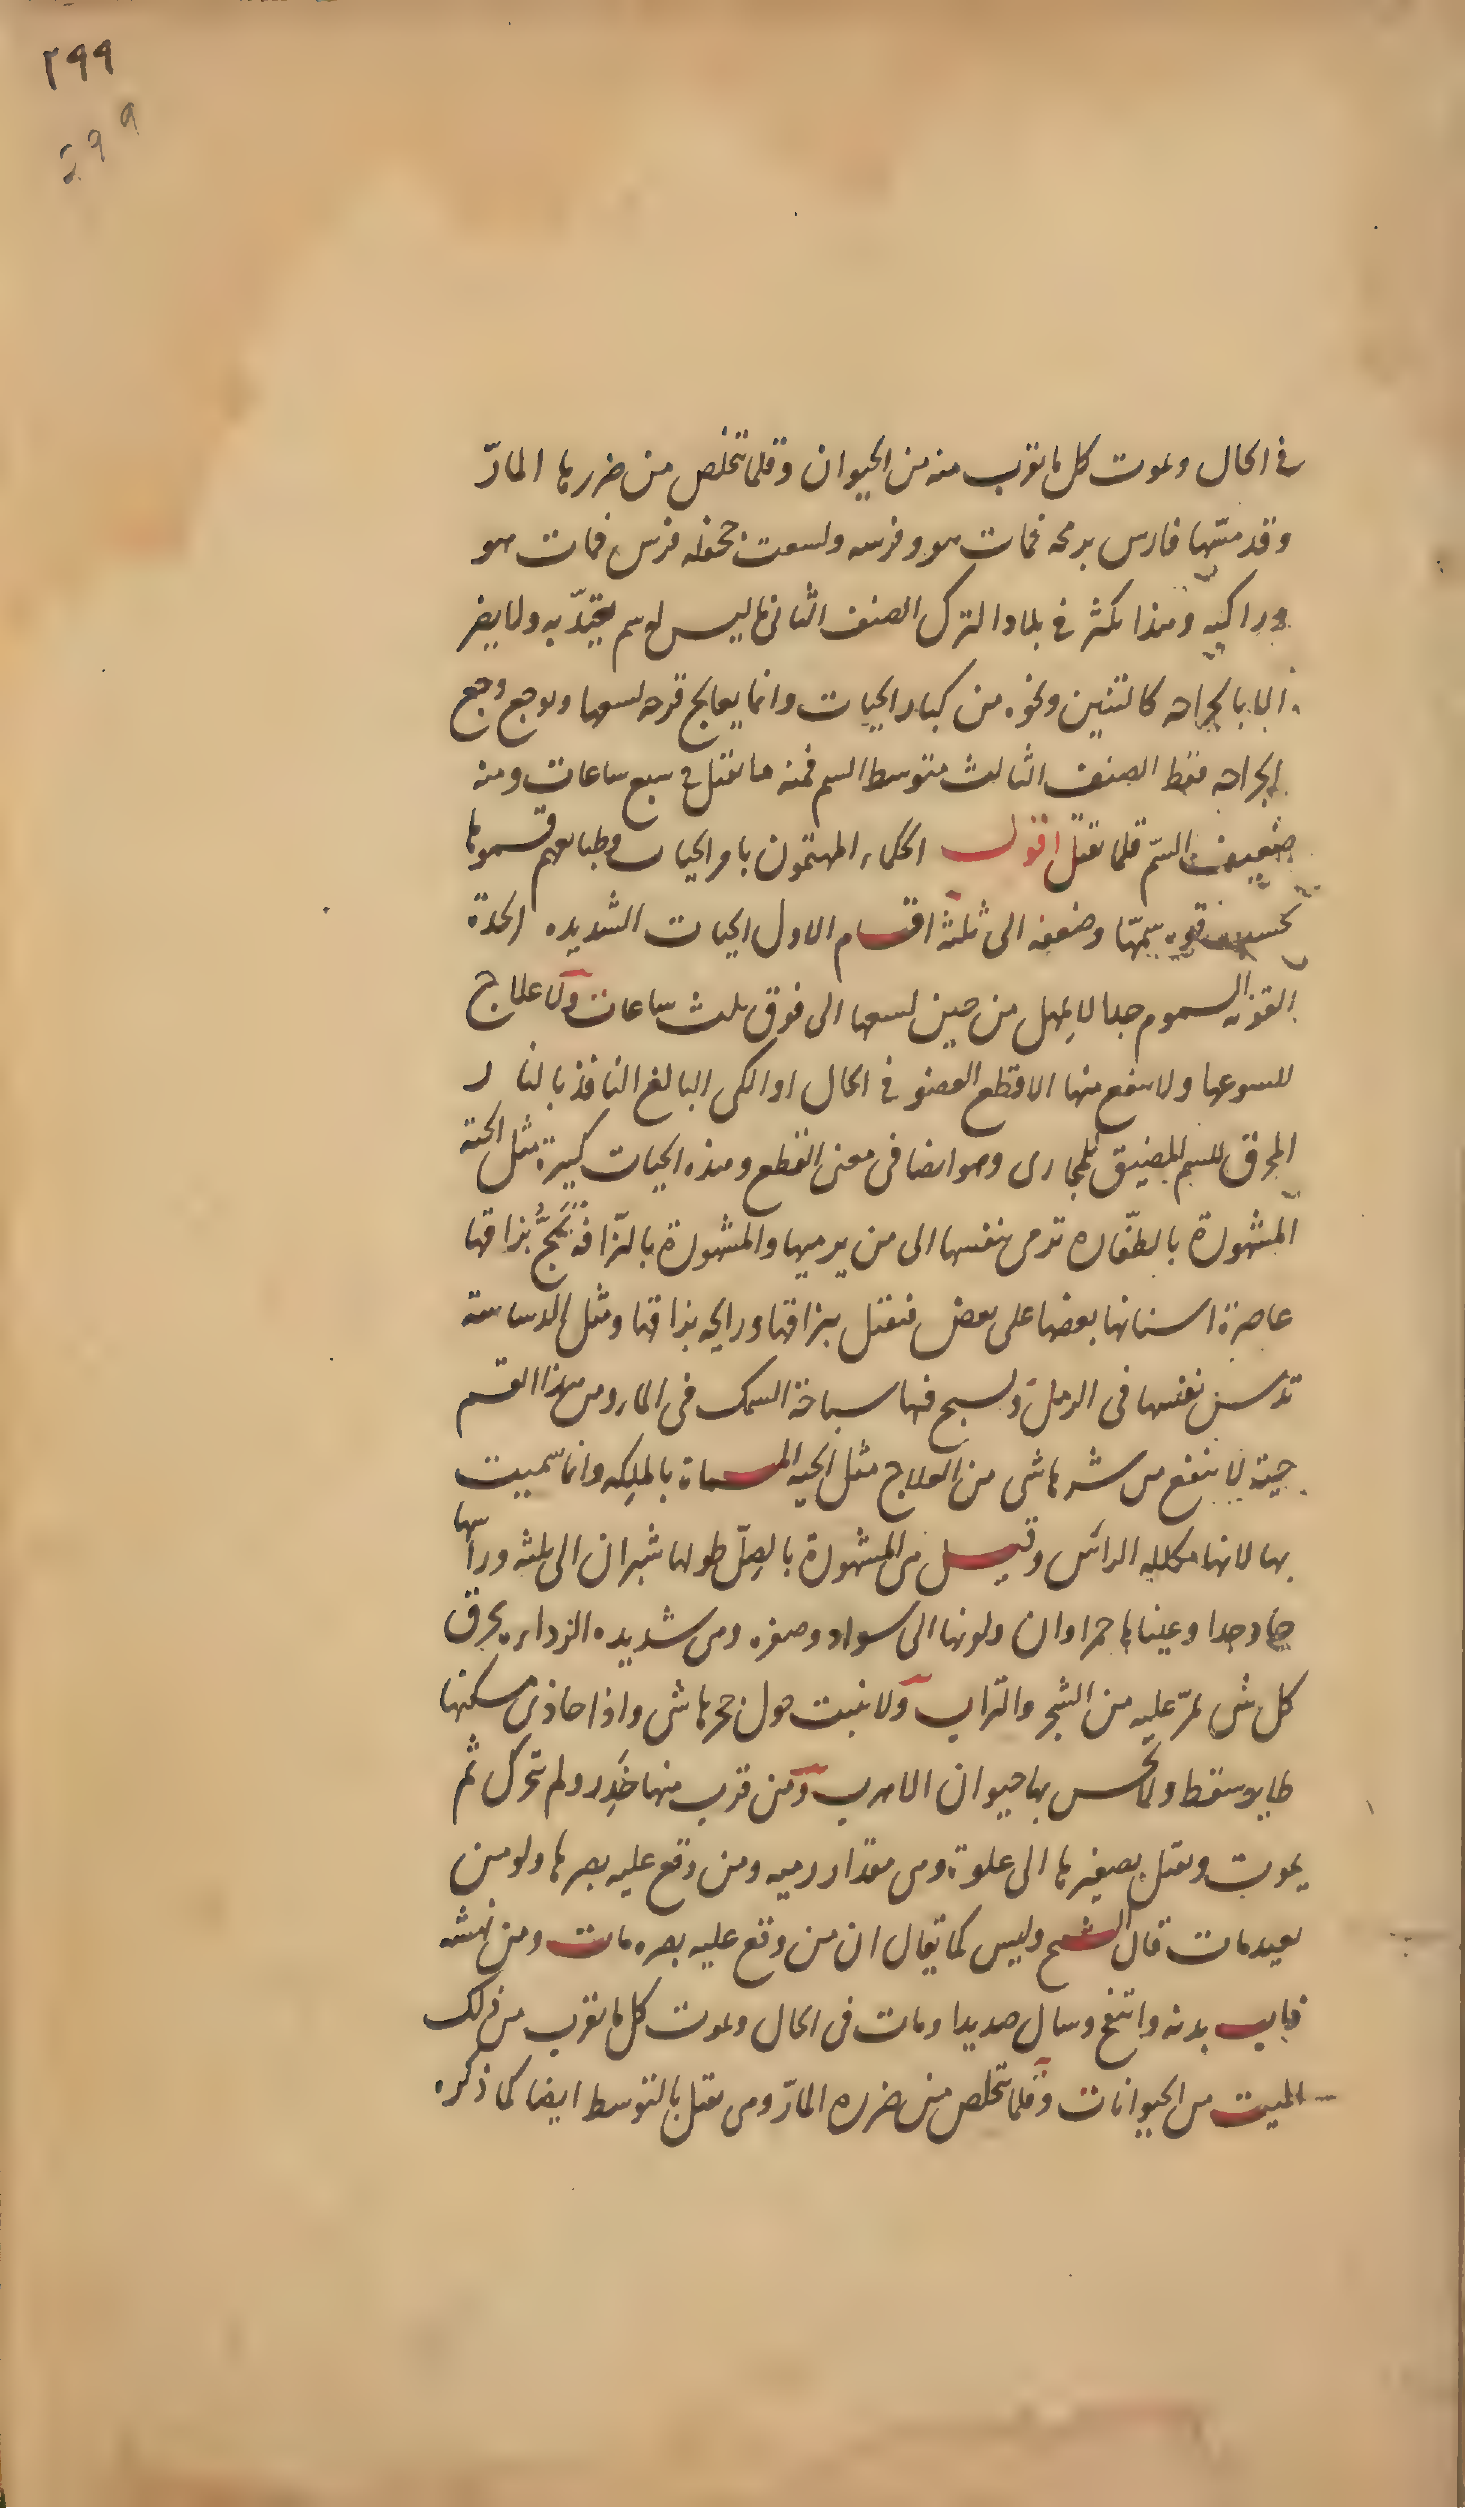 ٢٩٩
٢٩٩
فى الحال ويموت كل ما يقرب منه من الحيوان وقلما تخلص من ضررها المارّ
وقد مسّها فارس برمحه فمات هو وفرسه ولسعت جحفلة فرس فمات هو
وراكبه وهذا يكثر فى بلاد الترك الصنف الثانى ما ليس له سم يعتدّ به ولا يضر
الا بالجراحه كالتنين ونحوه من كبار الحيات وانما يعالج قرحه لسعها ويوجع وجع
الجراحه فقط الصنف الثالث متوسط السم فمنه ما يقتل فى سبع ساعات ومنه
ضعيف السّم قلما يقتل اقول الحكماء المهتمون بامر الحيات وطبايعهم قسموها
بحسب قوه سمّها وضعفه الى ثلثة اقسام الاول الحيات الشديده الحدة
القويه السموم جدا لا يمهل من حين لسعها الى فوق ثلث ساعات ولا علاج
للسوعها ولا ينفع منها الا قطع العضو فى الحال او الكى البالغ النافذ بالنار
المحرق للسم المضيق للمجارى وهو ايضا فى معنى القطع وهذه الحيات كثيرة مثل الحية
المشهورة بالطفّاره ترمى بنفسها الى من يرميها والمشهورة بالبزّاقة تَمُجُّ بزاقها
عاصرة اسنانها بعضها على بعض فتقتل ببزاقها ورايحه بزاقها ومثل الدساسة
تدسس نفسها فى الرمل وتسبح فيها سباحة السمك فى الماء ومن هذا القسم
حية لا ينفع من شرها شى من العلاج مثل الحيه المسماة بالملكه وانما سميت
بها لانها مكلله الرأس وقيل هى المشهورة بالصِلّ طولها شبران الى ثلثه ورأسها
حاد جدا وعيناها حمراوان ولونها الى سواد وصفره وهى شديده الرداءه يحرق
كل شى تمرّ عليه من الشجر والتراب ولا ينبت حول جحرها شى واذا حاذى مسكنها
طاير سقط ولا يحس بها حيوان الا هرب ومن قرب منها خَدِر ولم يتحرك ثم
يموت ويقتل بصفيرها الى غلوة وهى مقدار رميه ومن وقع عليه بصرها ولو من
بعيد مات قال الشيخ وليس كما يقال ان من وقع عليه بصره مات ومن نهشه
ذاب بدنه وانتفخ وسال صديدا ومات فى الحال ويموت كل ما يقرب من ذلك
الميت من الحيوانات وقلما تخلص من ضرره المارّ وهى يقتل بالتوسط ايضا كما ذكره